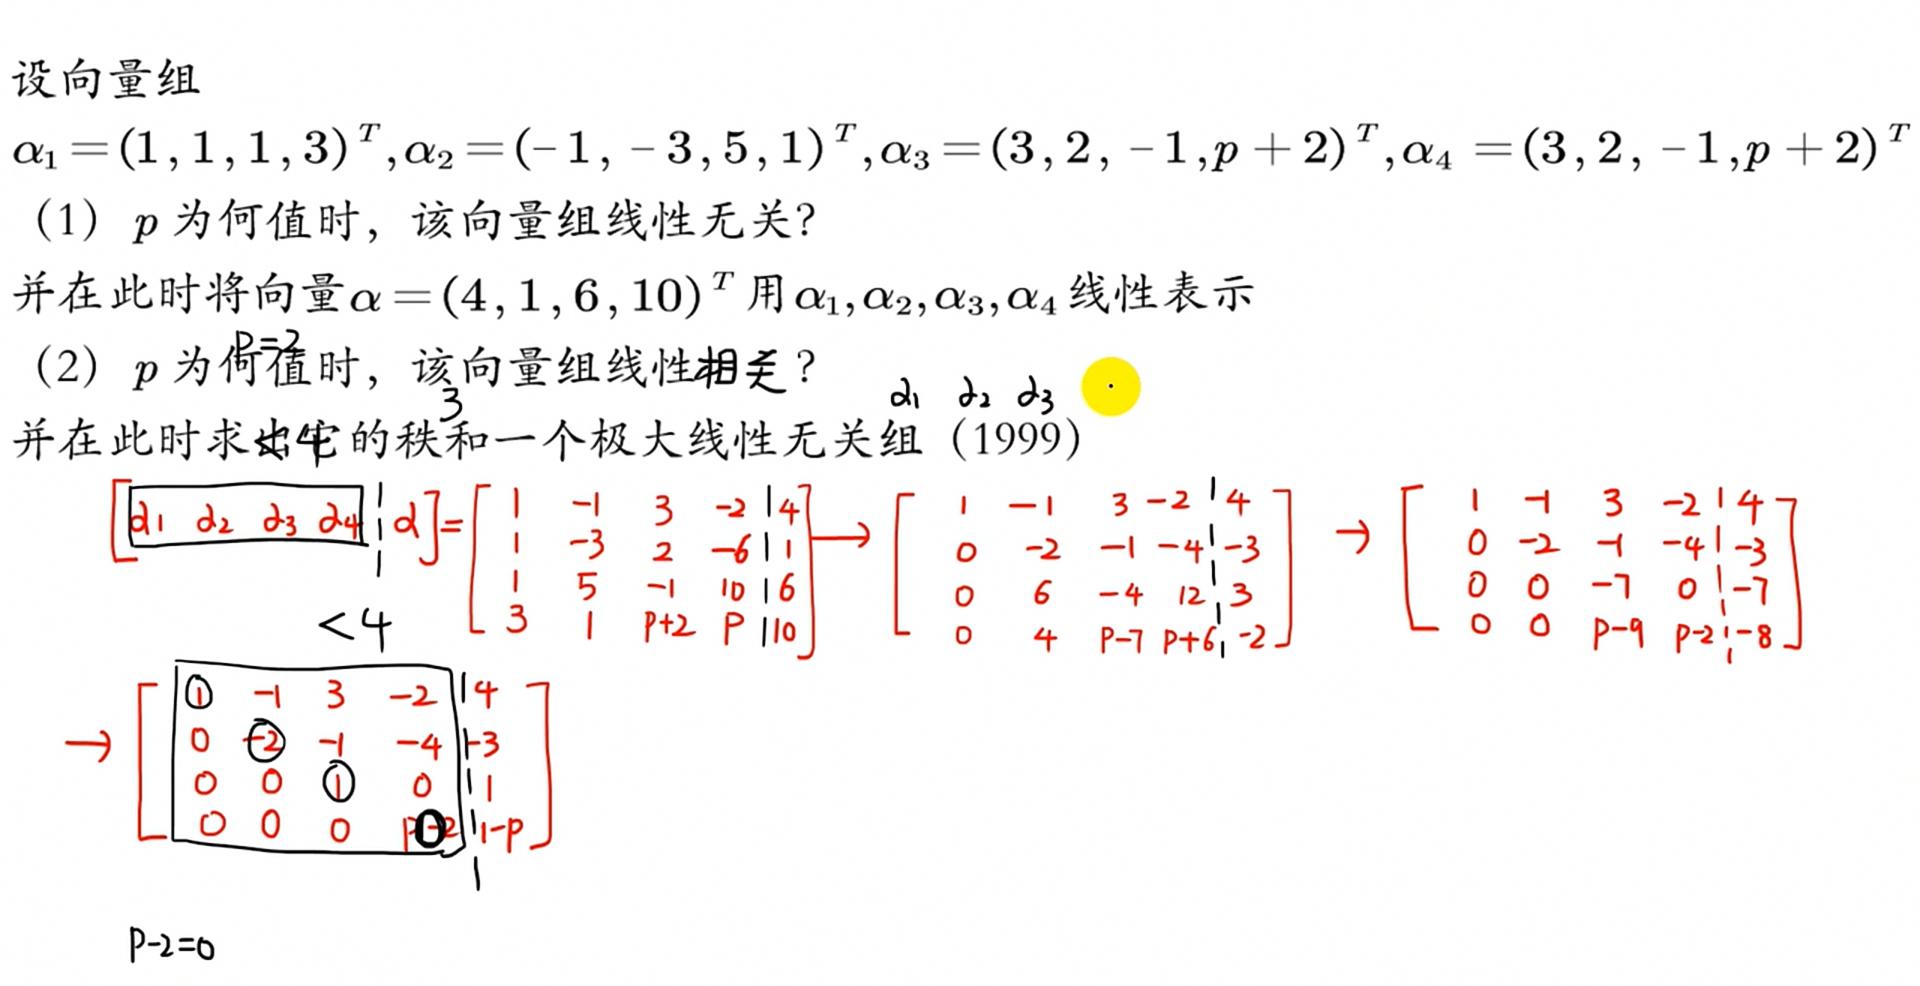 设向量组
α₁=(1,1,1,3)ᵀ,α₂=(-1,-3,5,1)ᵀ,α₃=(3,2,-1,p+2)ᵀ,α₄=(3,2,-1,p+2)ᵀ
(1) p 为何值时，该向量组线性无关?
并在此时将向量α=(4,1,6,10)ᵀ用α₁,α₂,α₃,α₄线性表示
P=2
(2) p 为何值时，该向量组线性相关?
3 α1 α2 α3
并在此时求出它的秩和一个极大线性无关组 (1999)
<4
[α1 α2 α3 α4 | α] = [1 -1 3 -2 | 4 → [1 -1 3 -2 | 4 → [1 -1 3 -2 | 4
1 -3 2 -6 | 1 0 -2 -1 -4 | -3 0 -2 -1 -4 | -3
1 5 -1 10 | 6 0 6 -4 12 | 3 0 0 -7 0 | -7
3 1 P+2 P | 10] 0 4 P-7 P+6 | -2] 0 0 P-9 P-2 | -8]
<4
→ [1 -1 3 -2 | 4
0 -2 -1 -4 | -3
0 0 1 0 | 1
0 0 0 P-2 | 1-P]
0
P-2=0